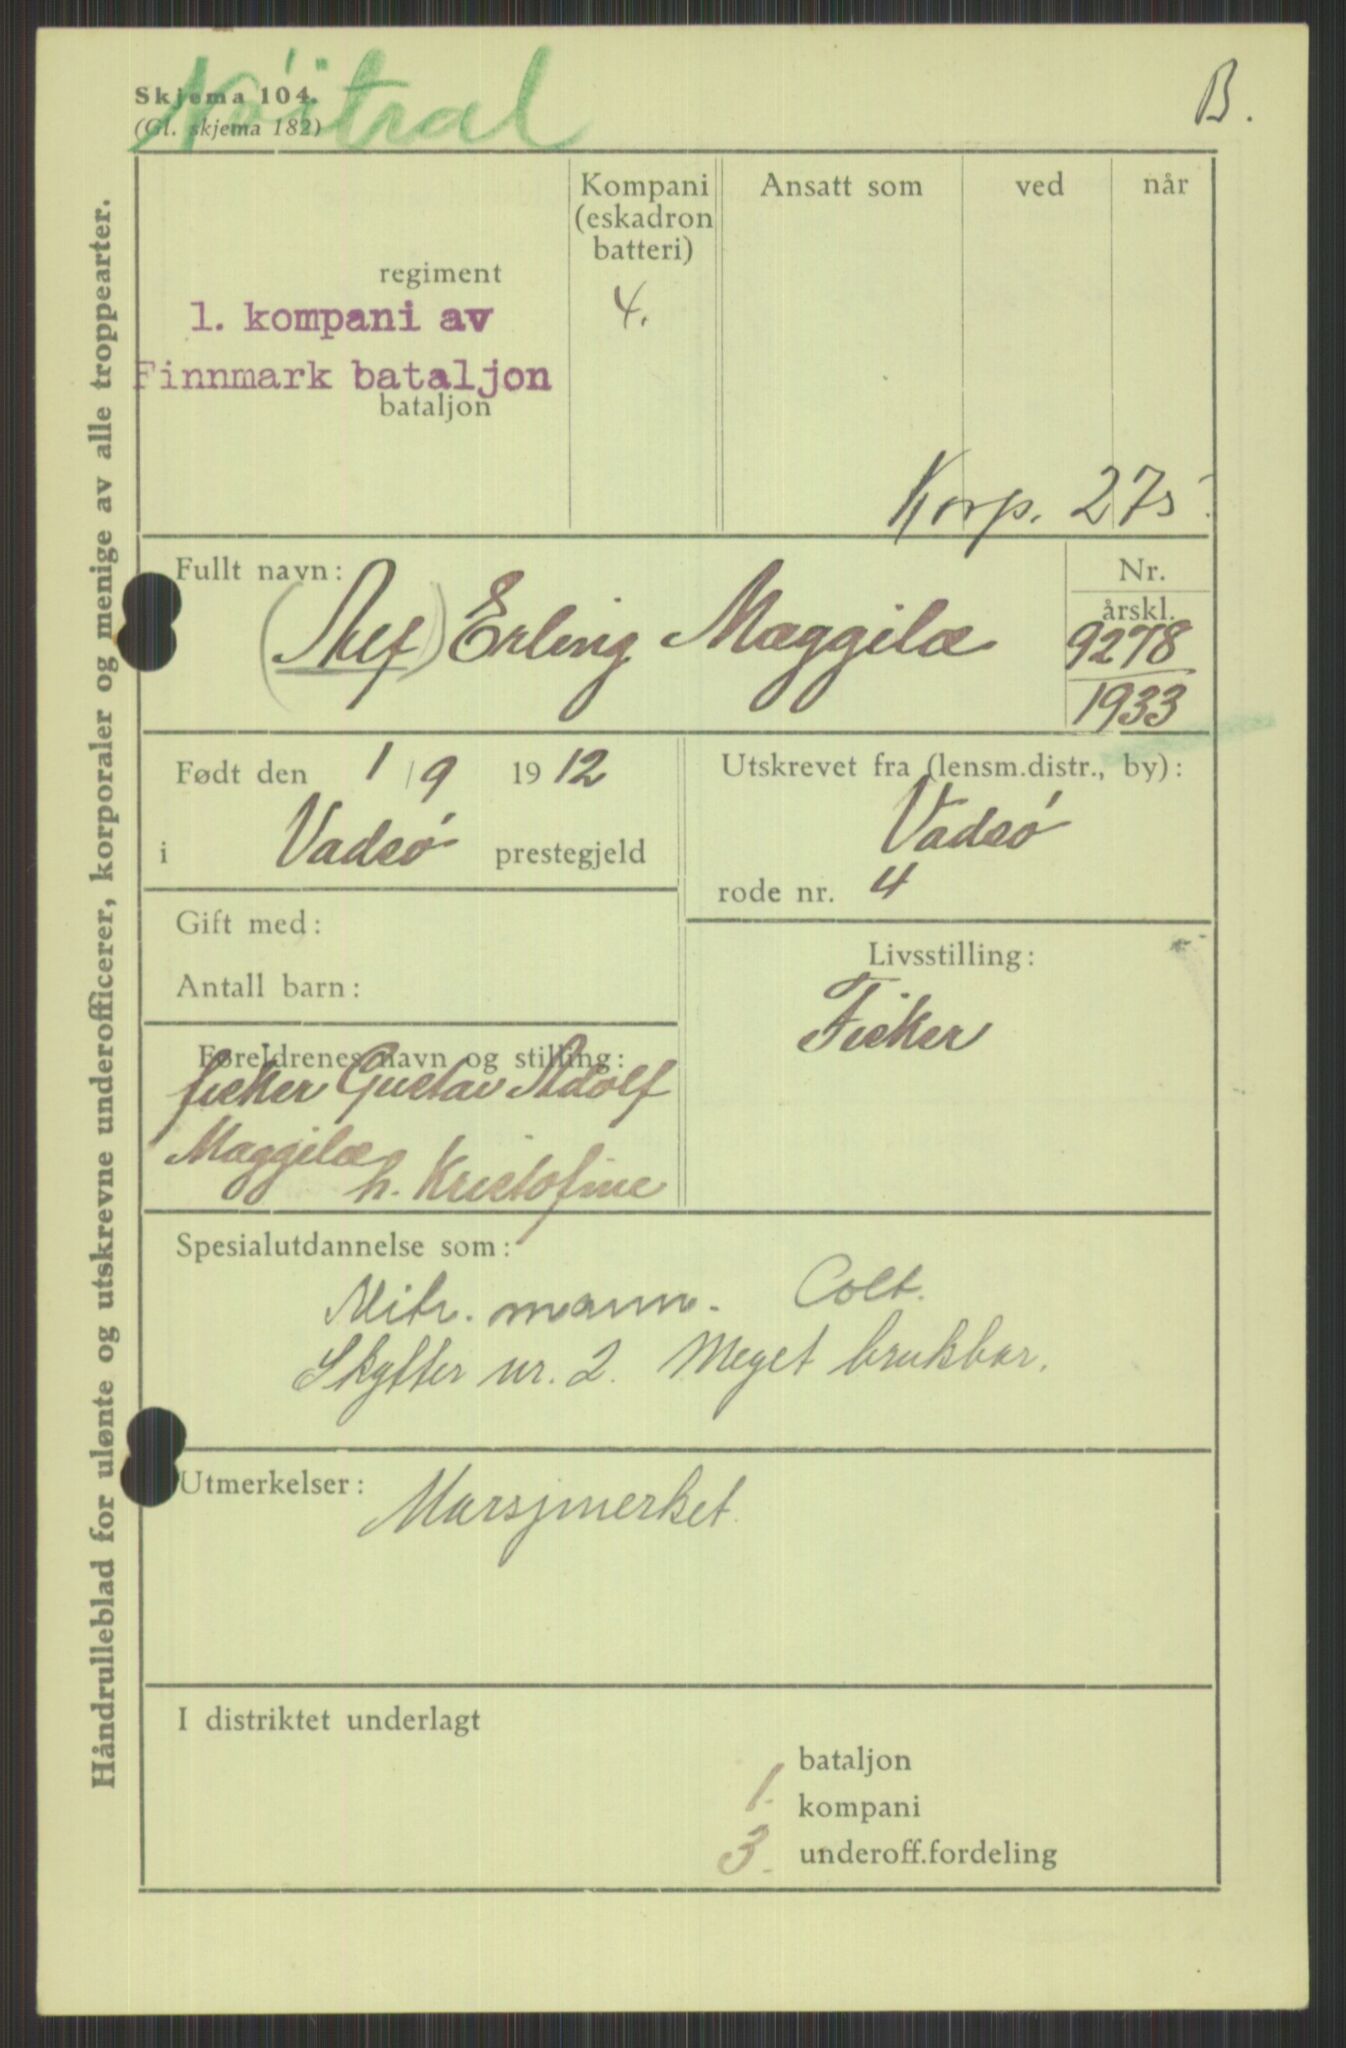 Nøitral
Skjema 104.
(Gl. skjema 182)
B.
Håndrulleblad for ulønte og utskrevne underofficerer, korporaler og menige av alle troppearter.
Kompani
(eskadron
batteri)
Ansatt som
ved
når
regiment
4.
1. kompani av
Finnmark bataljon
bataljon
Korp. 275
Fullt navn:
(Alf) Erling Mæggilæ
Nr.
årskl.
9278
1933
Født den 1/9 1912
i Vadsø prestegjeld
Utskrevet fra (lensm.distr., by):
Vadsø
rode nr. 4
Gift med:
Antall barn:
Livsstilling:
Fisker
Foreldrenes navn og stilling:
fisker Gustav Adolf
Mæggilæ
h. Kristofine
Spesialutdannelse som:
Mitr. mann. Colt.
Skytter nr. 2. Meget brukbar.
Utmerkelser: Marsjmerket.
I distriktet underlagt
bataljon
1. kompani
3. underoff.fordeling